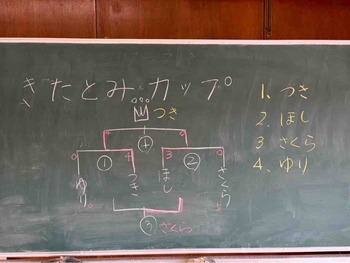 きたとみカップ
つき
④
① ②
3
ゆり つき ほし さくら
③ さくら
1、つき
2、ほし
3 さくら
4、ゆり